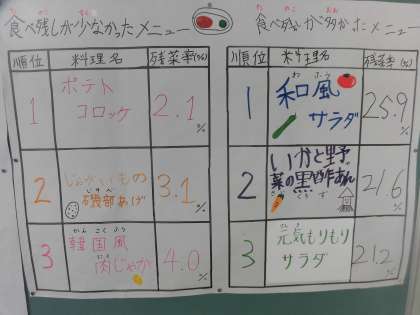 食べ残しが少なかったメニュー
順位 料理名 残菜率(%)
1 ポテト
コロッケ 2.1%
2 じゃがいもの
磯部あげ 3.1%
3 韓国風
肉じゃが 4.0%
食べ残しが多かったメニュー
順位 料理名 残菜率(%)
1 和風
サラダ 25.9%
2 いかと野
菜の黒酢あん 21.6%
3 元気もりもり
サラダ 21.2%